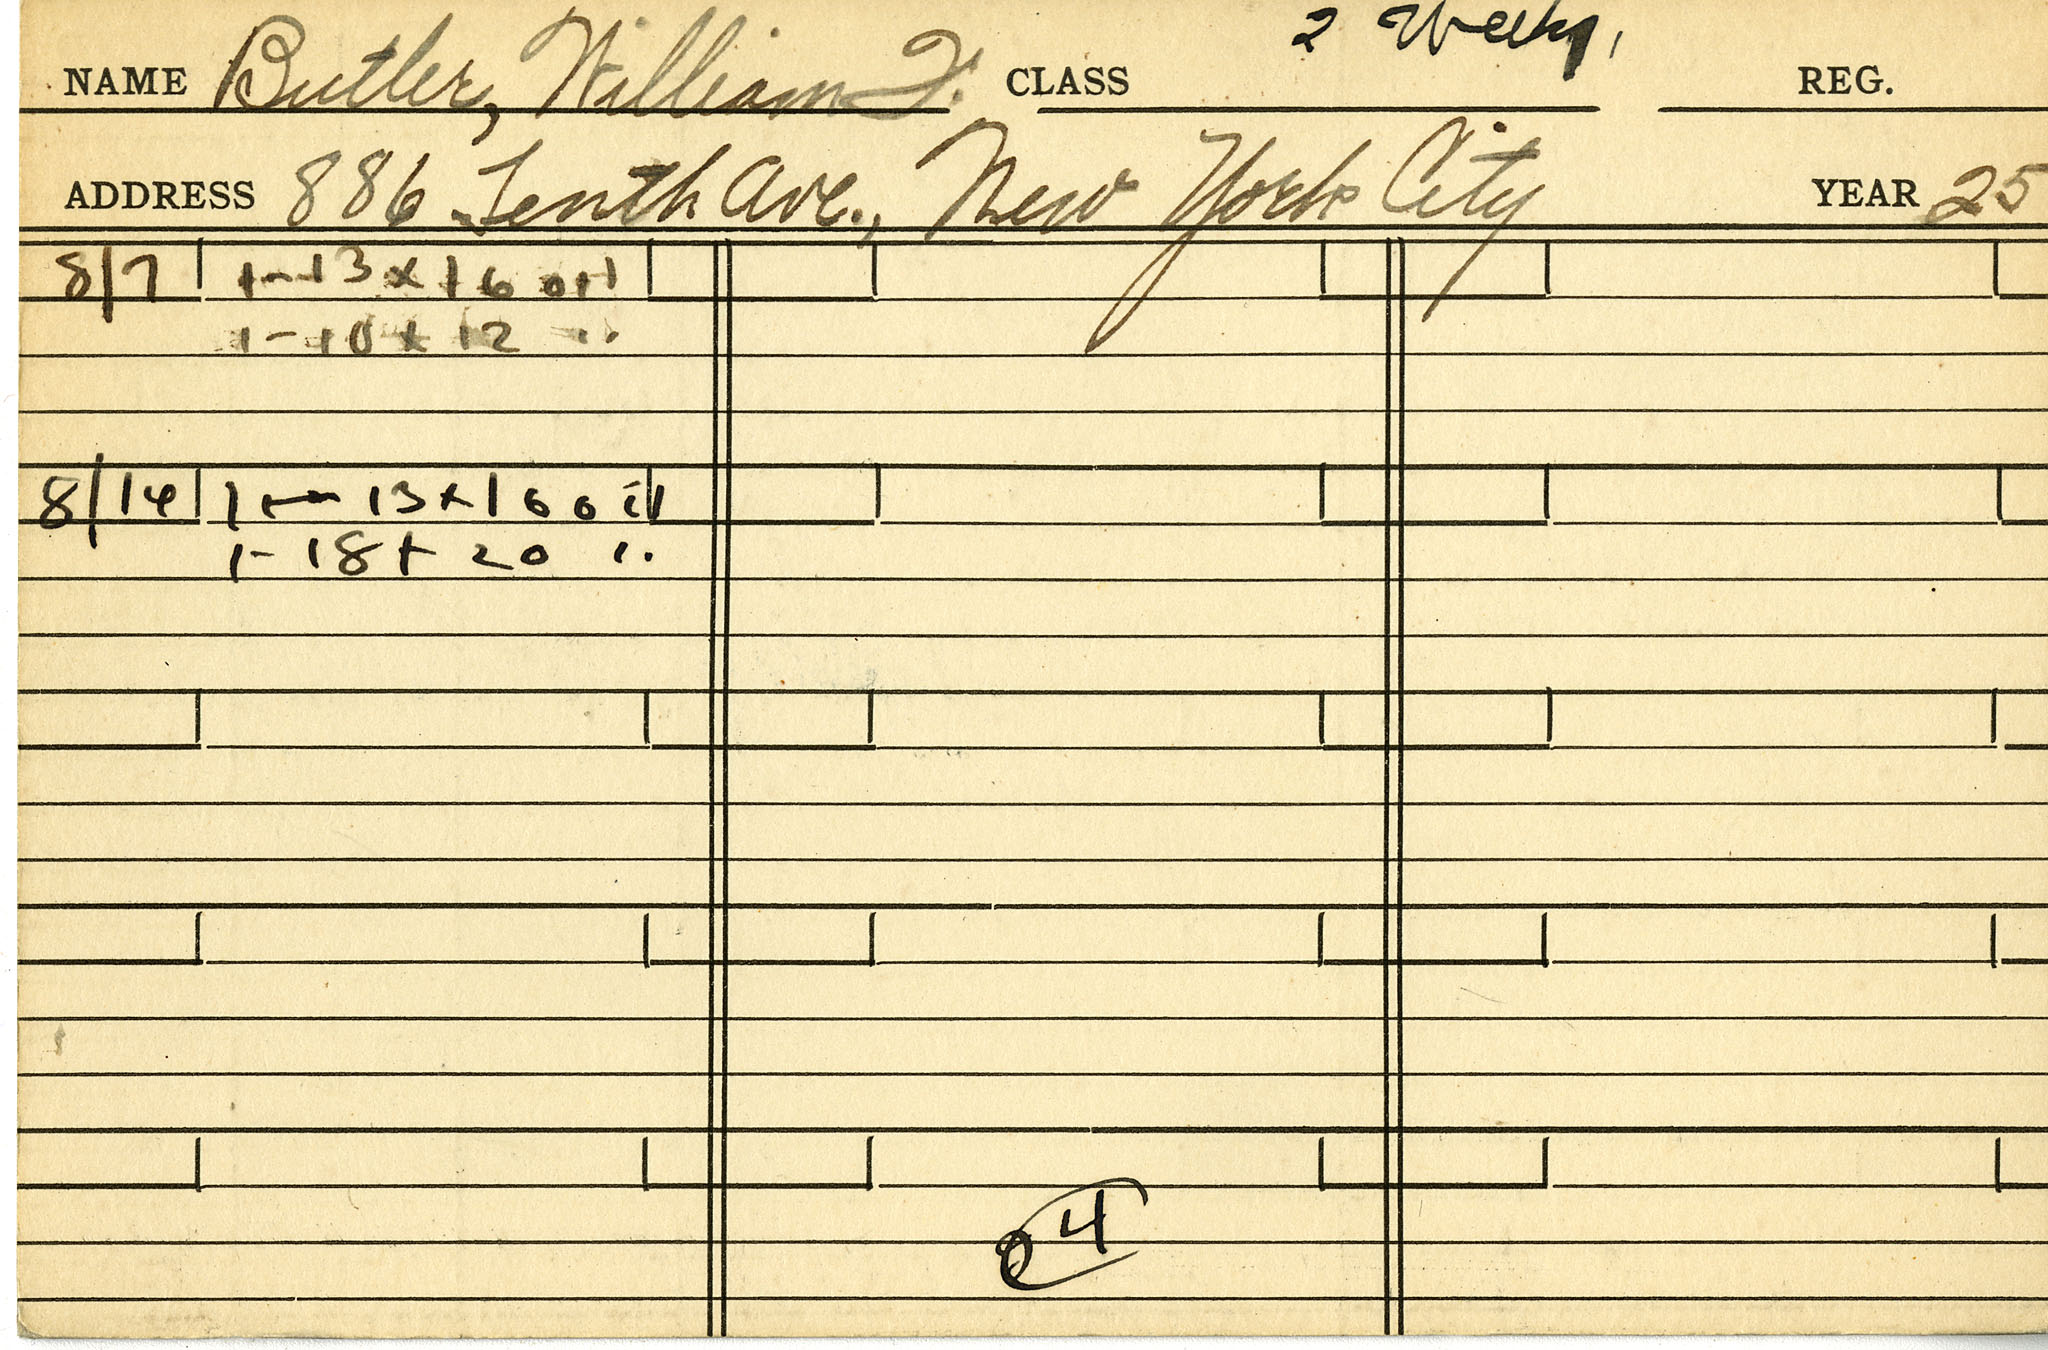 2 Weeks,
NAME Butler, William F. CLASS REG.
ADDRESS 886 Tenth Ave., New York City YEAR 25
8/7 1-13x16 oil
1-10x12 "
8/14 1-13x16 oil
1-18x20 "
4